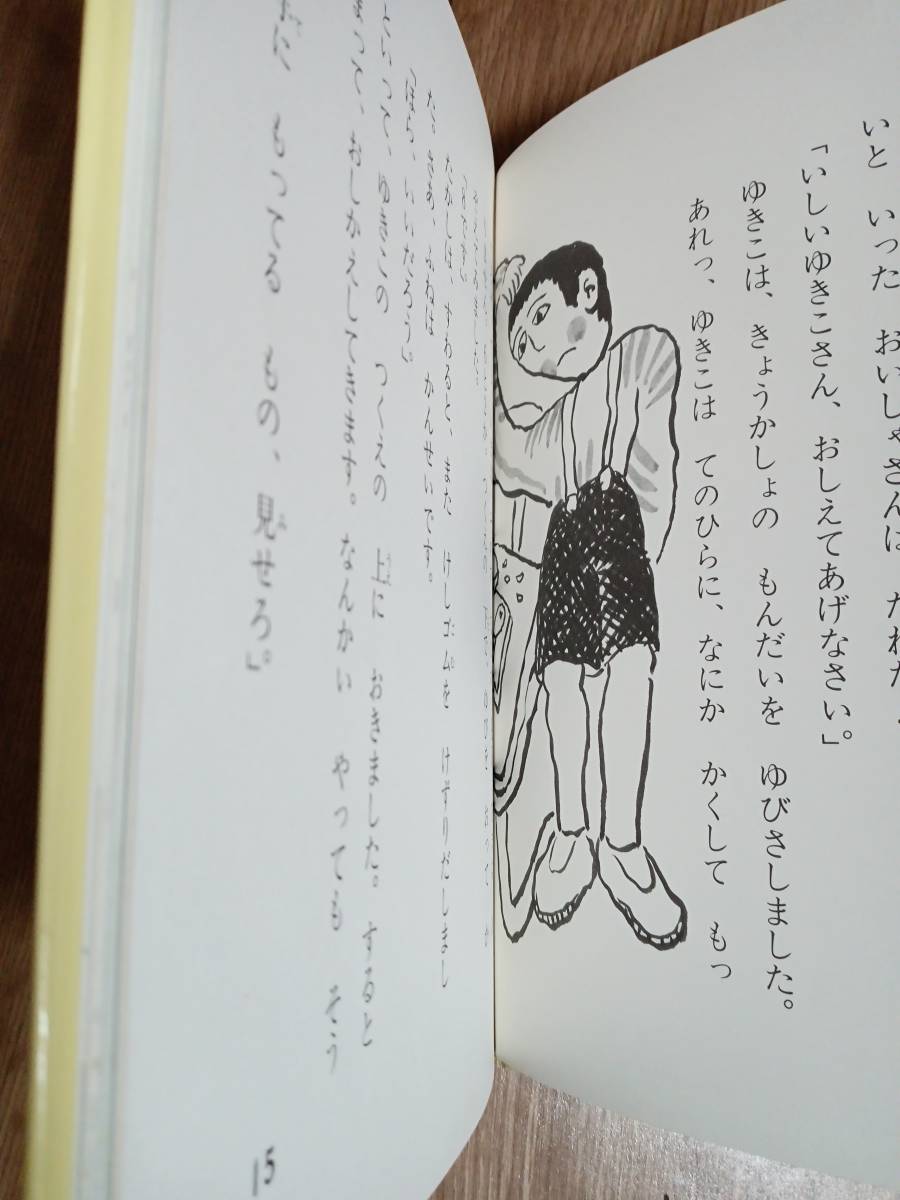 いと いった おいしゃさんは だれだ
「いしいゆきこさん、おしえてあげなさい。」
ゆきこは、きょうかしょの もんだいを ゆびさしました。
あれっ、ゆきこは てのひらに、なにか かくして もっ
たかしは、すわると、また けしゴムを けずりだしまし
た。さあ ふねは かんせいです。
「ほら、いいだろう」。
といって、ゆきこの つくえの 上に おきました。すると
まって、おしかえしてきます。なんかい やっても そう
もってる もの、見せろ」。
15